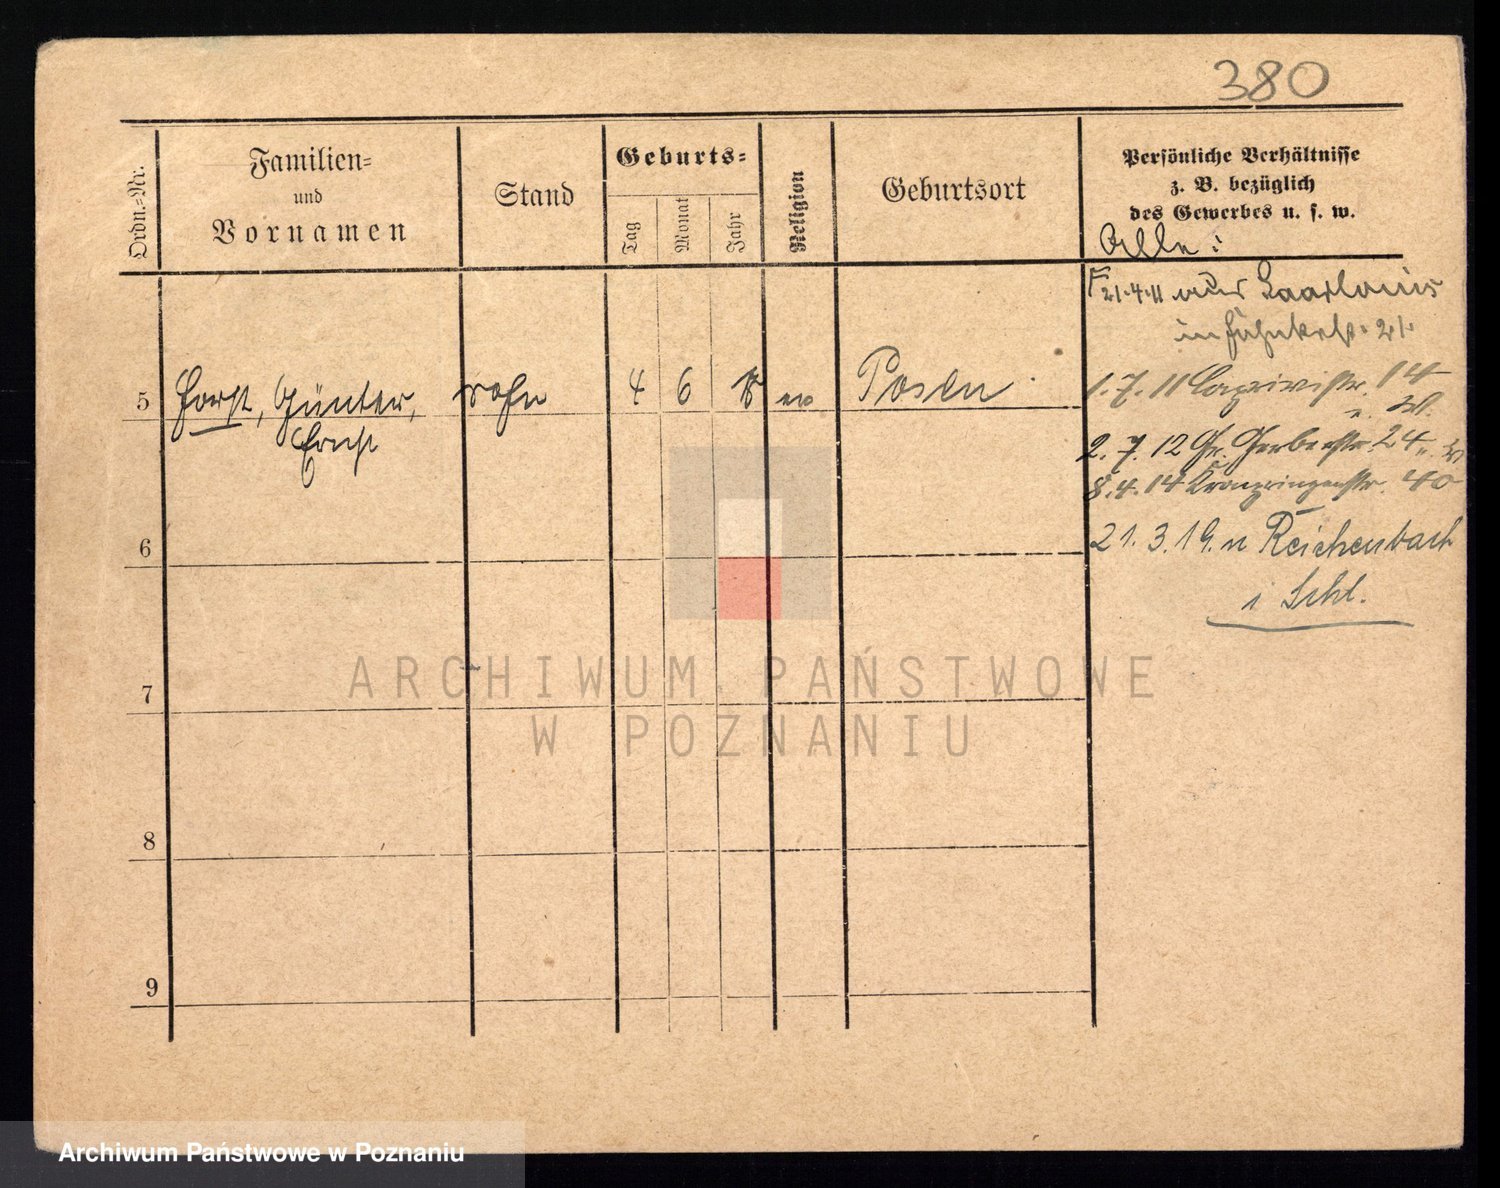 380
Ordn.-Nr.
Familien-
und
Vornamen
Stand
Geburts-
Tag
Monat
Jahr
Religion
Geburtsort
Persönliche Verhältnisse
z. B. bezüglich
des Gewerbes u. s. w.
Alle:
21.4.11 aus Saarlouis
in 21.
1.7.11 Caprivistr. 14
2.7.12 Gr. Gerberstr. 24
8.4.14 Kronprinzenstr. 40
21.3.19. n Reichenbach
i Schl.
5 Horst, Günter, sohn 4 6 ev Posen
Ernst
6
7
8
9
ARCHIWUM PAŃSTWOWE
W POZNANIU
Archiwum Państwowe w Poznaniu